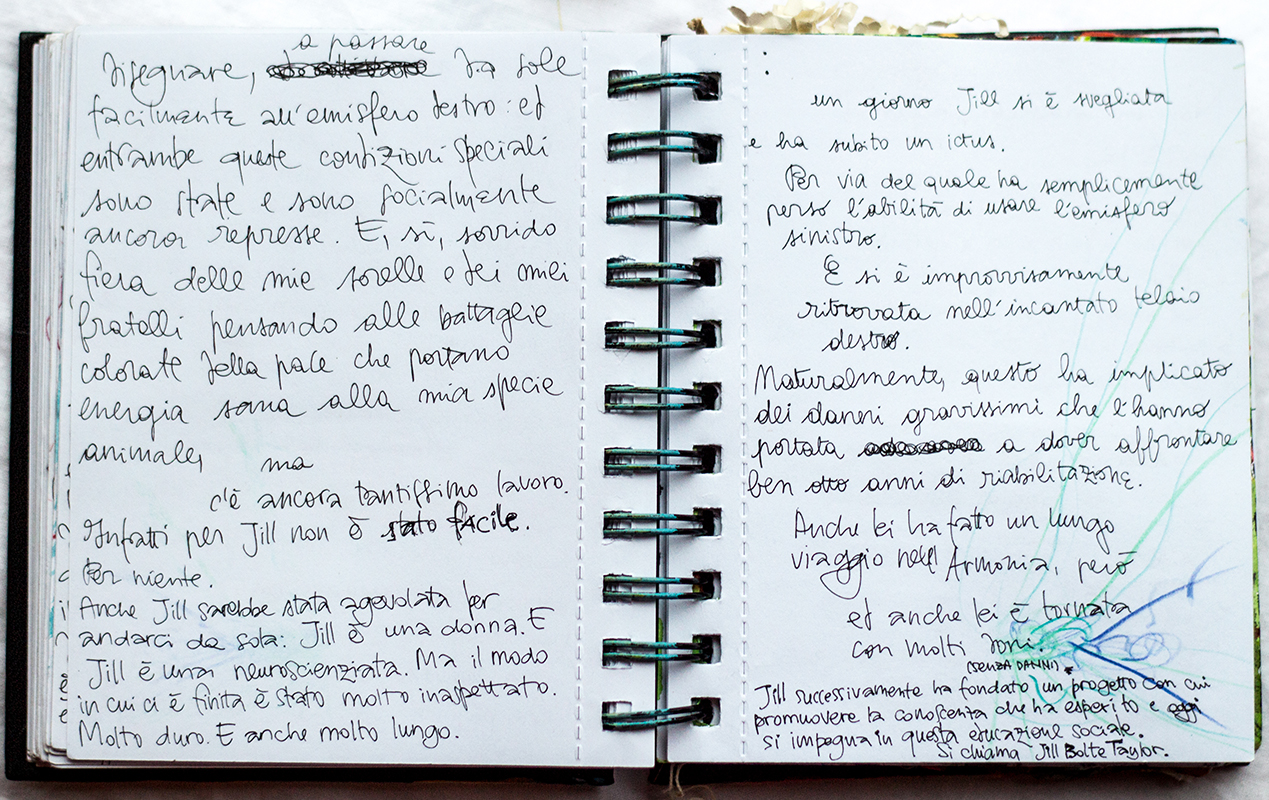 a passare
disegnare, da sole
facilmente all'emisfero destro: ed
entrambe queste condizioni speciali
sono state e sono socialmente
ancora represse. E, sì, sorrido
fiera delle mie sorelle e dei miei
fratelli pensando alle battaglie
colorate della pace che portano
energia sana alla mia specie
animale, ma
c'è ancora tantissimo lavoro.
Infatti per Jill non è stato facile.
Per niente.
Anche Jill sarebbe stata agevolata per
andarci da sola: Jill è una donna. E
Jill è una neuroscienziata. Ma il modo
in cui ci è finita è stato molto inaspettato.
Molto duro. E anche molto lungo.
un giorno Jill si è svegliata
e ha subito un ictus.
Per via del quale ha semplicemente
perso l'abilità di usare l'emisfero
sinistro.
E si è improvvisamente
ritrovata nell'incantato telaio
destro.
Naturalmente, questo ha implicato
dei danni gravissimi che l'hanno
portata a dover affrontare
ben otto anni di riabilitazione.
Anche lei ha fatto un lungo
viaggio nell'Armonia, però
ed anche lei è tornata
con molti doni.
(SENZA DANNI)
Jill successivamente ha fondato un progetto con cui
promuovere la conoscenza che ha esperito e oggi
si impegna in questa educazione sociale.
Si chiama Jill Bolte Taylor.